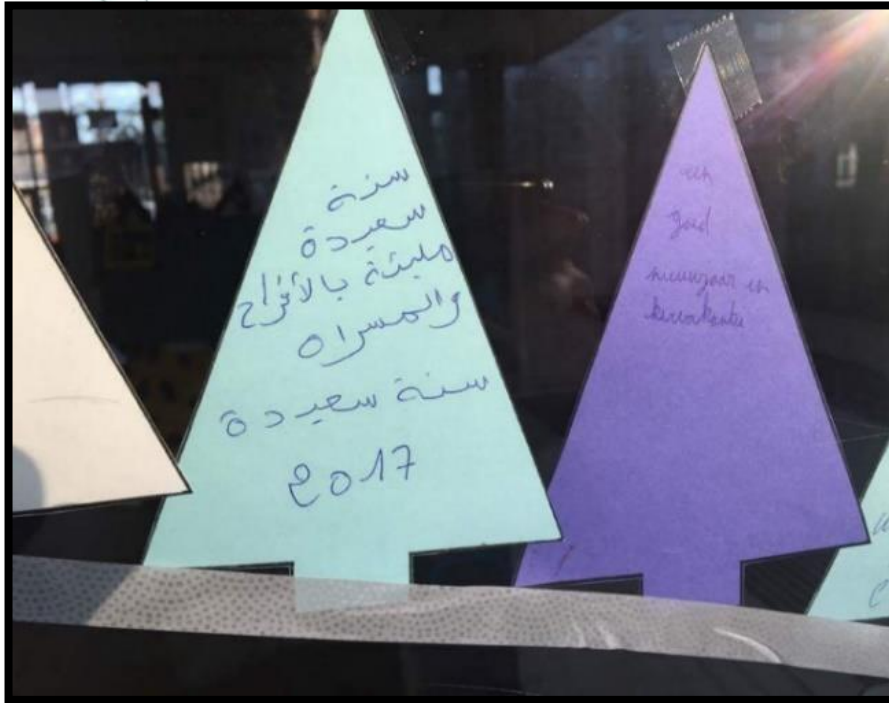 سنة
سعيدة
مليئة بالأفراح
والمسراه
سنة سعيدة
2017
een
goed
nieuwjaar en